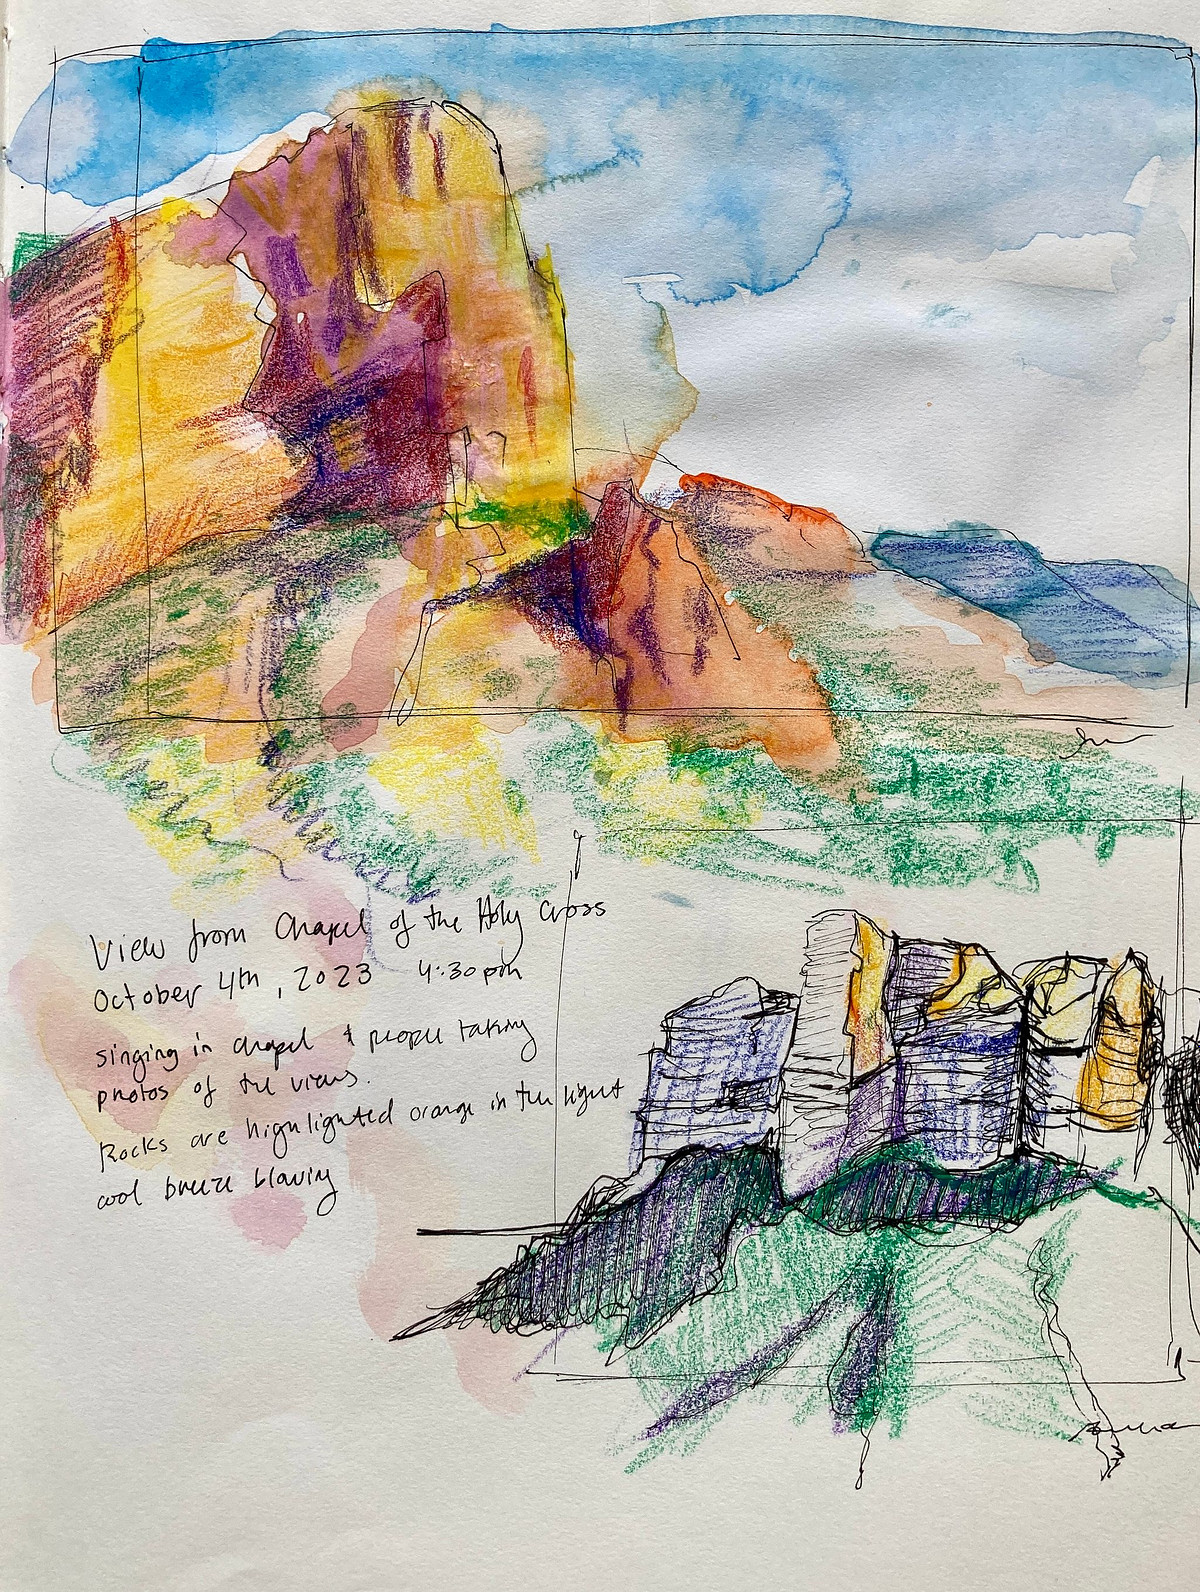 View from Chapel of the Holy Cross
October 4th, 2023 4:30pm
singing in chapel & people taking
photos of the views.
Rocks are highlighted orange in the light
cool breeze blowing